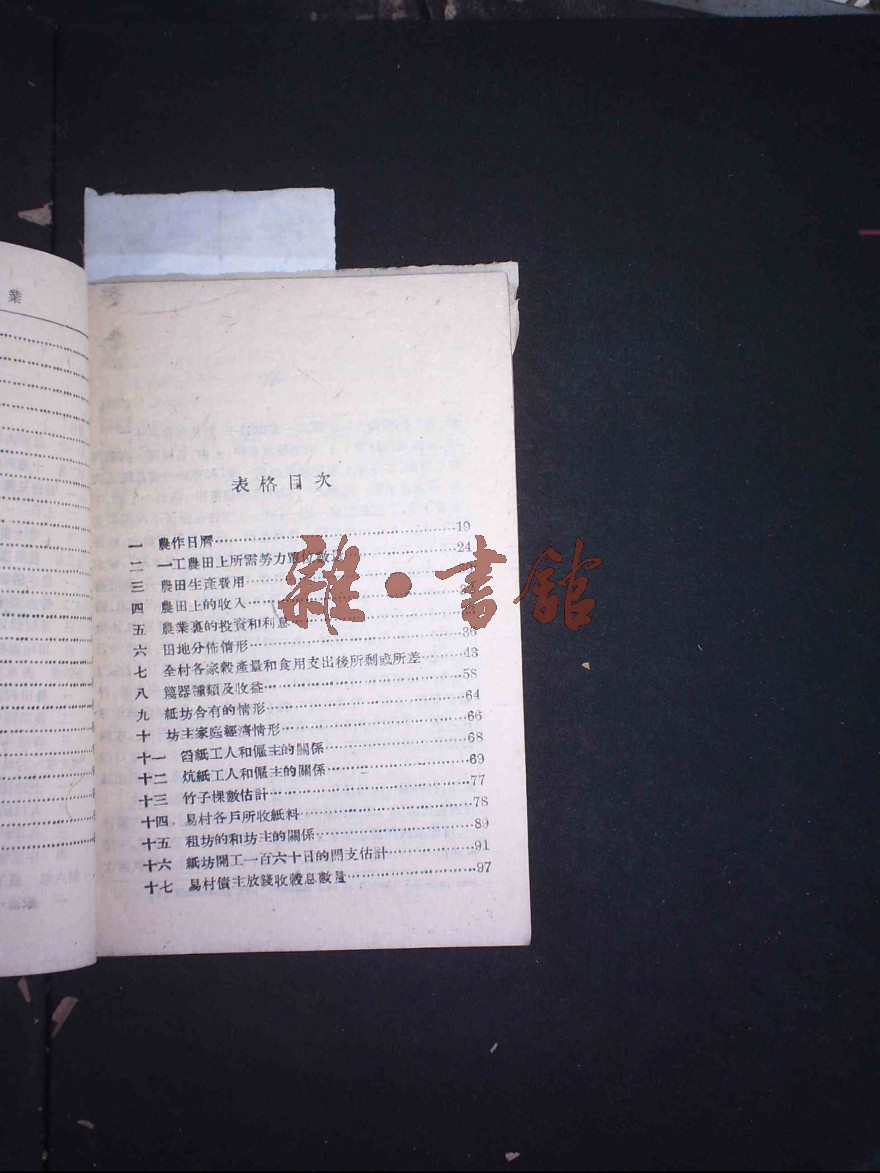 業
表格目次
一 農作日曆……19
二 一工農田上所需勞力……24
三 農田生產費用……
四 農田上的收入……
五 農業裏的投資和利息……
六 田地分佈情形……36
七 全村各家穀產量和食用支出後所剩或所差……43
八 篾器種類及收益……58
九 紙坊合有的情形……64
十 坊主家庭經濟情形……66
十一 舀紙工人和僱主的關係……68
十二 炕紙工人和僱主的關係……69
十三 竹子棵數估計……77
十四 易村各戶所收紙料……78
十五 租坊的和坊主的關係……89
十六 紙坊開工一百六十日的開支估計……91
十七 易村債主放錢收穀息數量……97
雜·書館